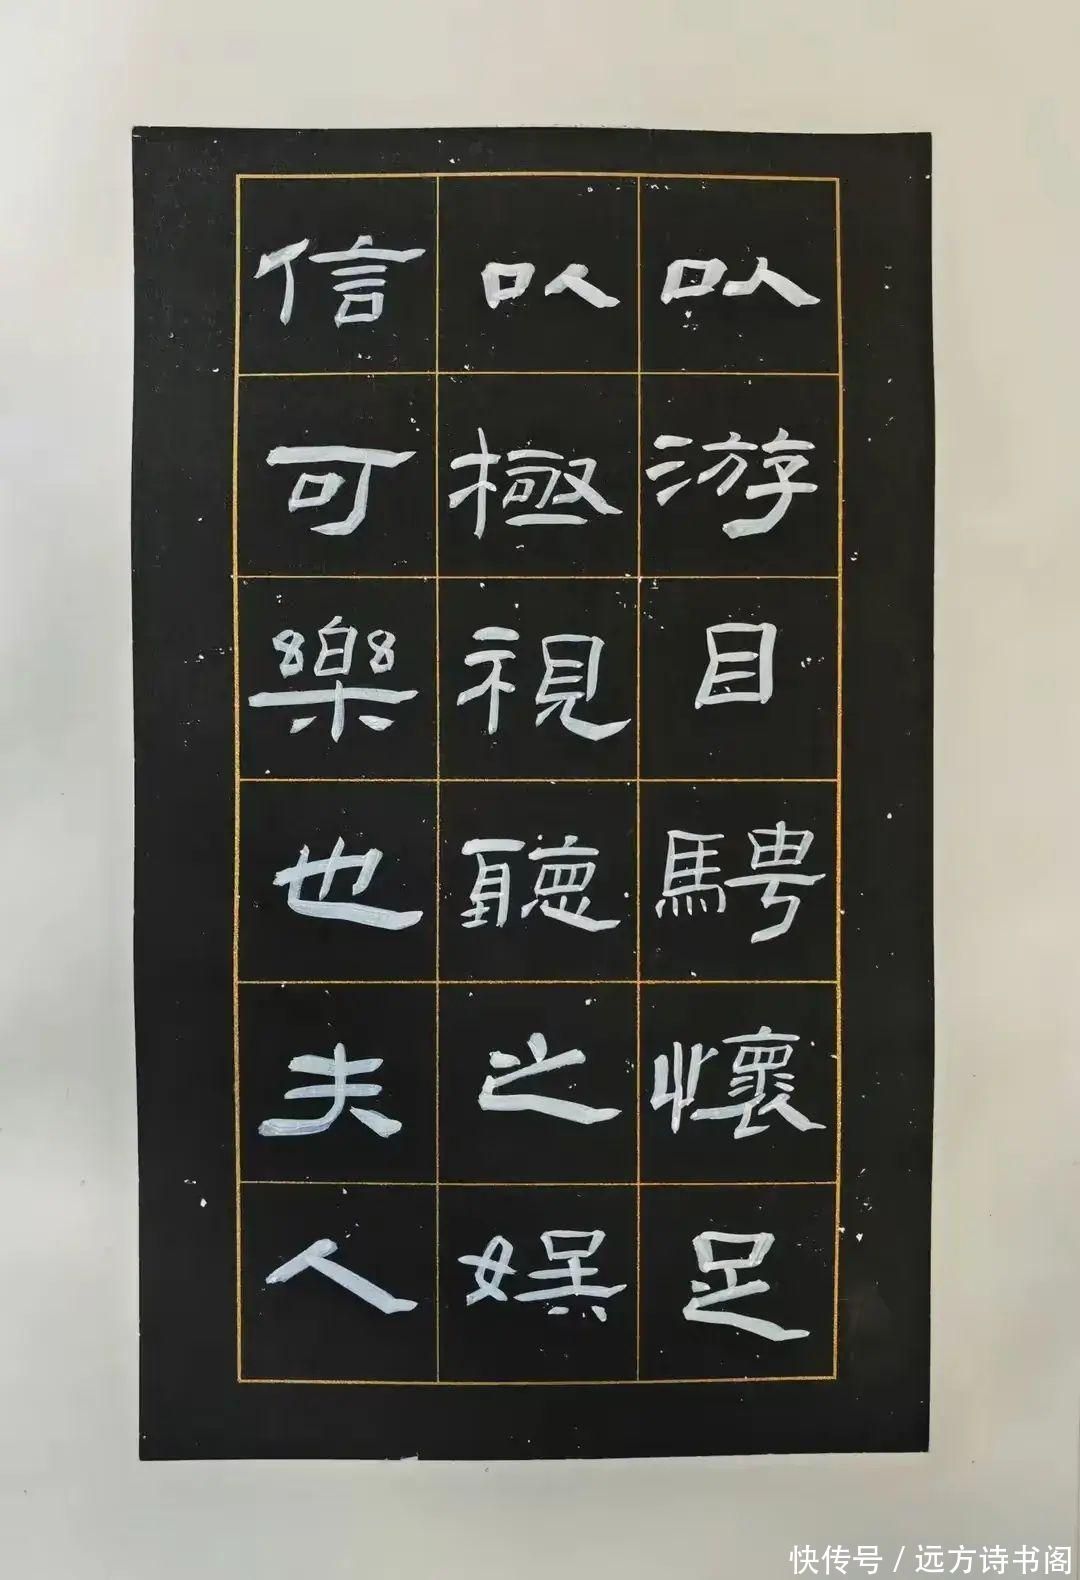 以游目騁懷足
以極視聽之娱
信可樂也夫人
快传号/远方诗书阁